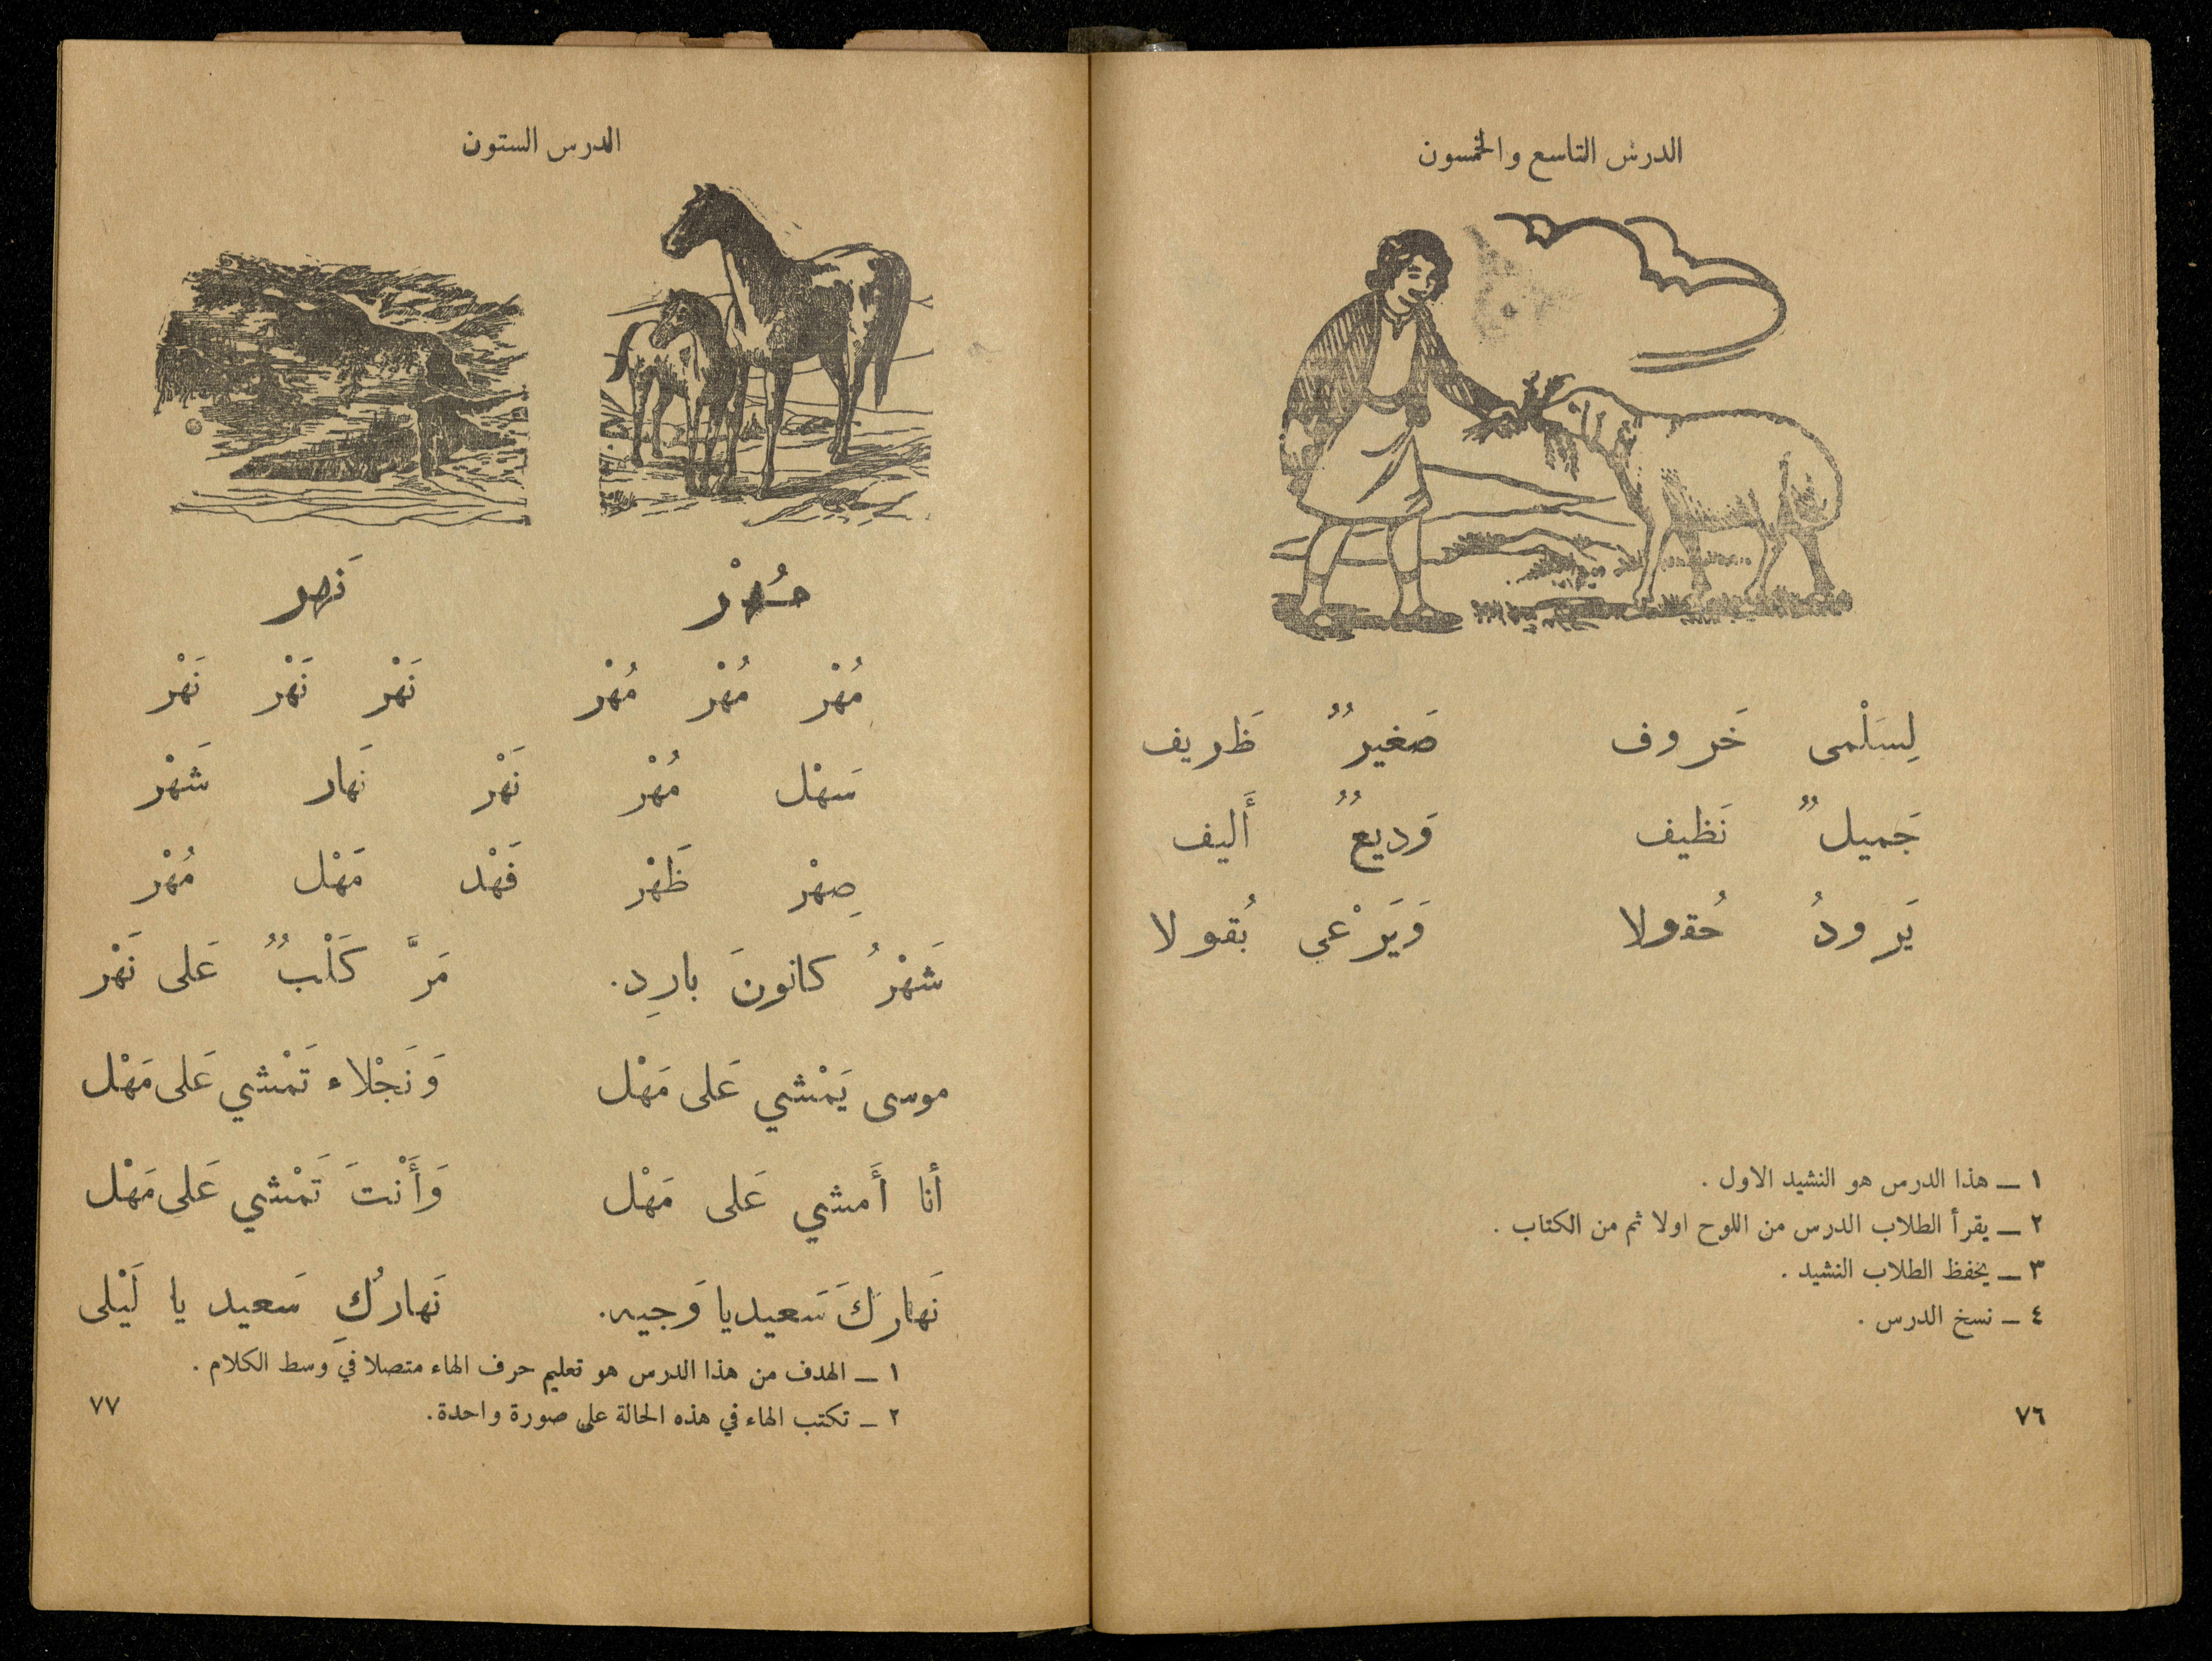 الدرس التاسع والخمسون
لِسَلْمى خَروف صَغيرٌ ظَريف
جَميلٌ نَظيف وَديعٌ أَليف
يَرودُ حُقولا وَيَرْعى بُقولا
١ ــ هذا الدرس هو النشيد الاول .
٢ ــ يقرأ الطلاب الدرس من اللوح اولا ثم من الكتاب .
٣ ــ يحفظ الطلاب النشيد .
٤ ــ نسخ الدرس .
٧٦
الدرس الستون
مُهْر نَهر
مُهْر مُهْر مُهْر نَهْر نَهْر نَهْر
سَهْل مُهْر نَهْر نَهار شَهْر
صِهْر ظَهْر فَهْد مَهْل مُهْر
شَهْرُ كانونَ بارِد. مَرَّ كَلْبٌ عَلى نَهْر
موسى يَمْشي عَلى مَهْل وَنَجْلاء تَمْشي عَلى مَهْل
أنا أَمشي عَلى مَهْل وَأَنْتَ تَمْشي عَلى مَهْل
نَهارُكَ سَعيد يا وَجيه. نَهارُكِ سَعيد يا لَيْلى
١ ــ الهدف من هذا الدرس هو تعليم حرف الهاء متصلا في وسط الكلام .
٢ ــ تكتب الهاء في هذه الحالة على صورة واحدة.
٧٧